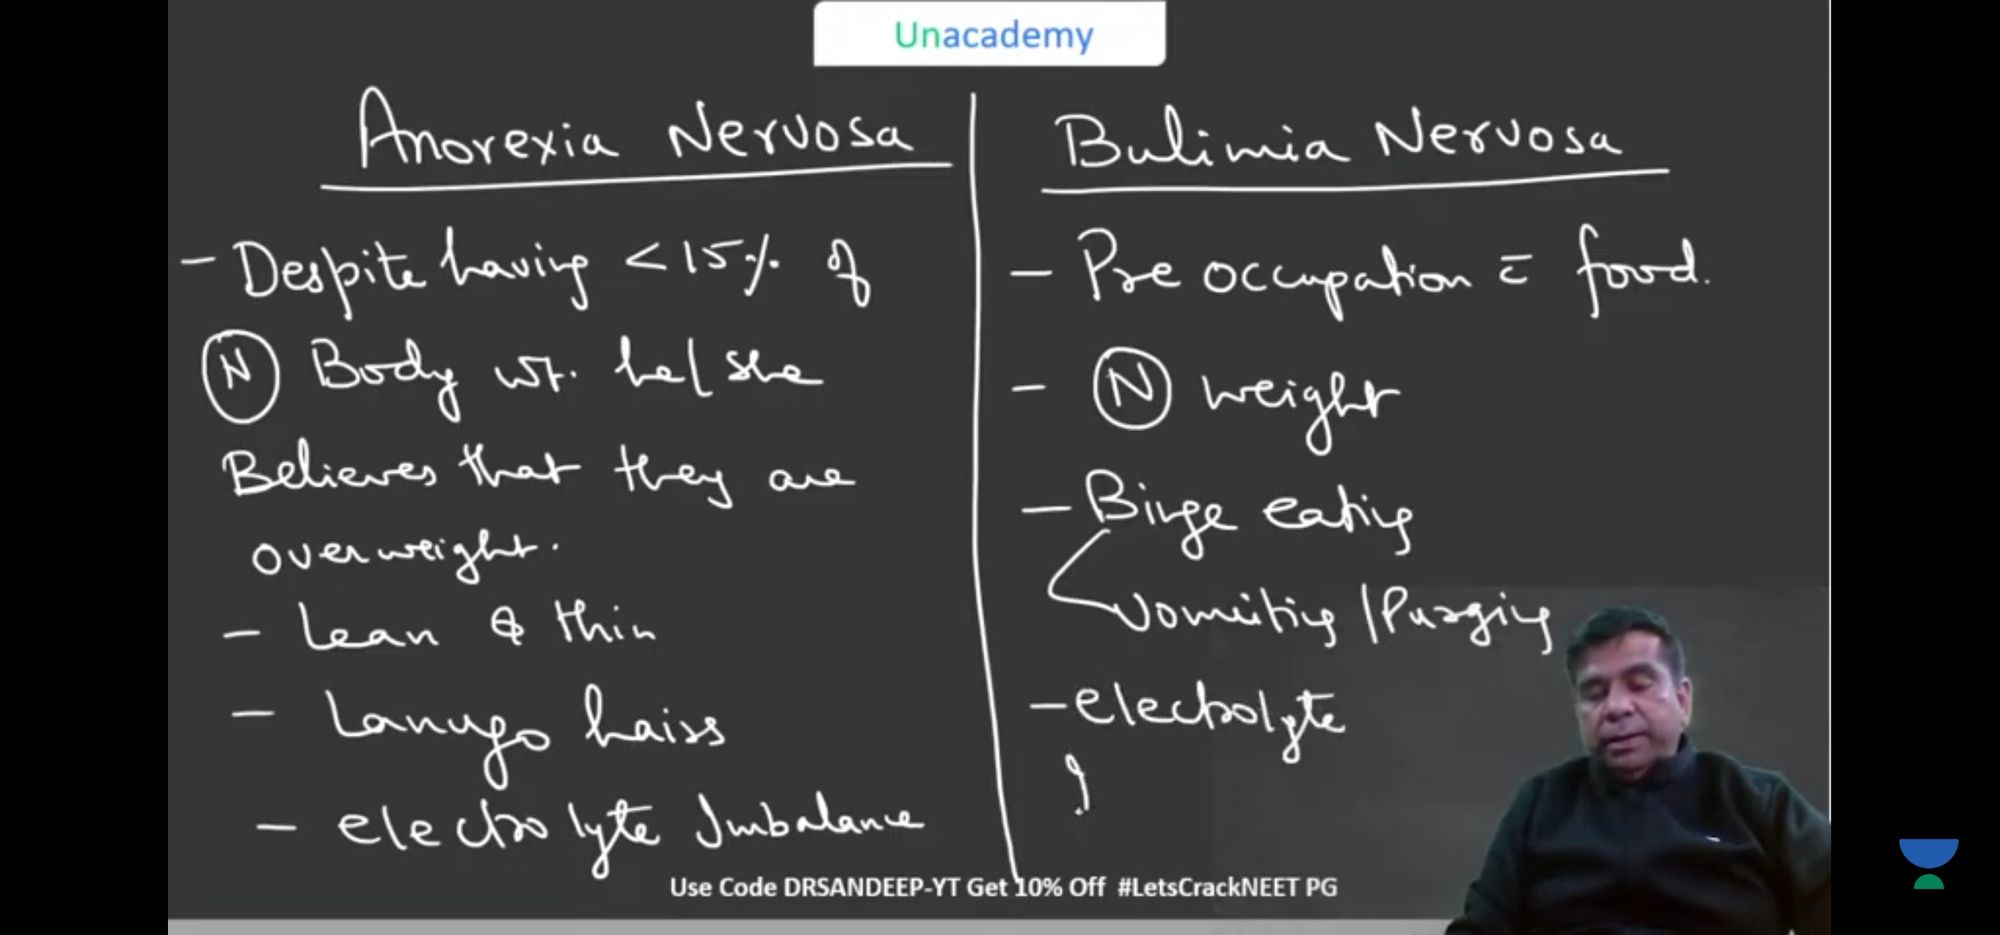 Unacademy
Anorexia Nervosa
- Despite having <15% of
(N) Body wt. he/she
Believes that they are
overweight.
- Lean & thin
- Lanugo hairs
- electrolyte Imbalance
Bulimia Nervosa
- Pre occupation c̄ food.
- (N) weight
- Binge eating
Vomiting / Purging
- electrolyte
Use Code DRSANDEEP-YT Get 10% Off #LetsCrackNEET PG